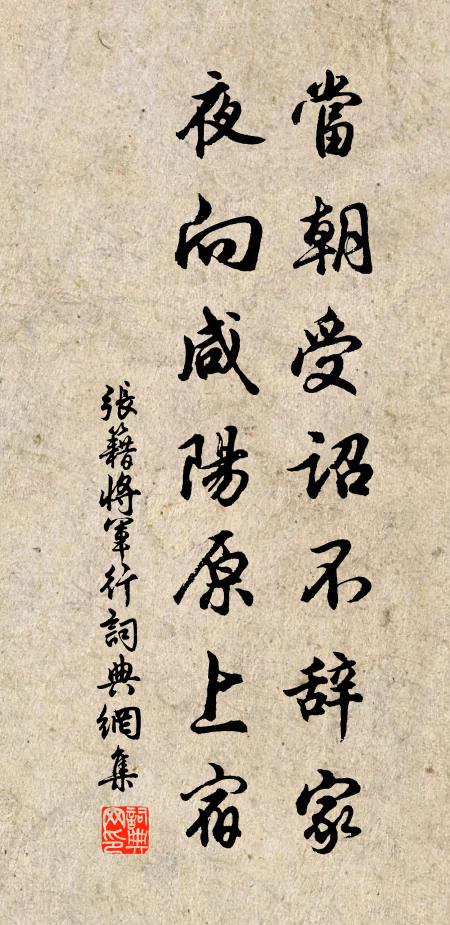 當朝受詔不辞家
夜向咸陽原上宿
張籍將軍行詞典網集
詞典網印